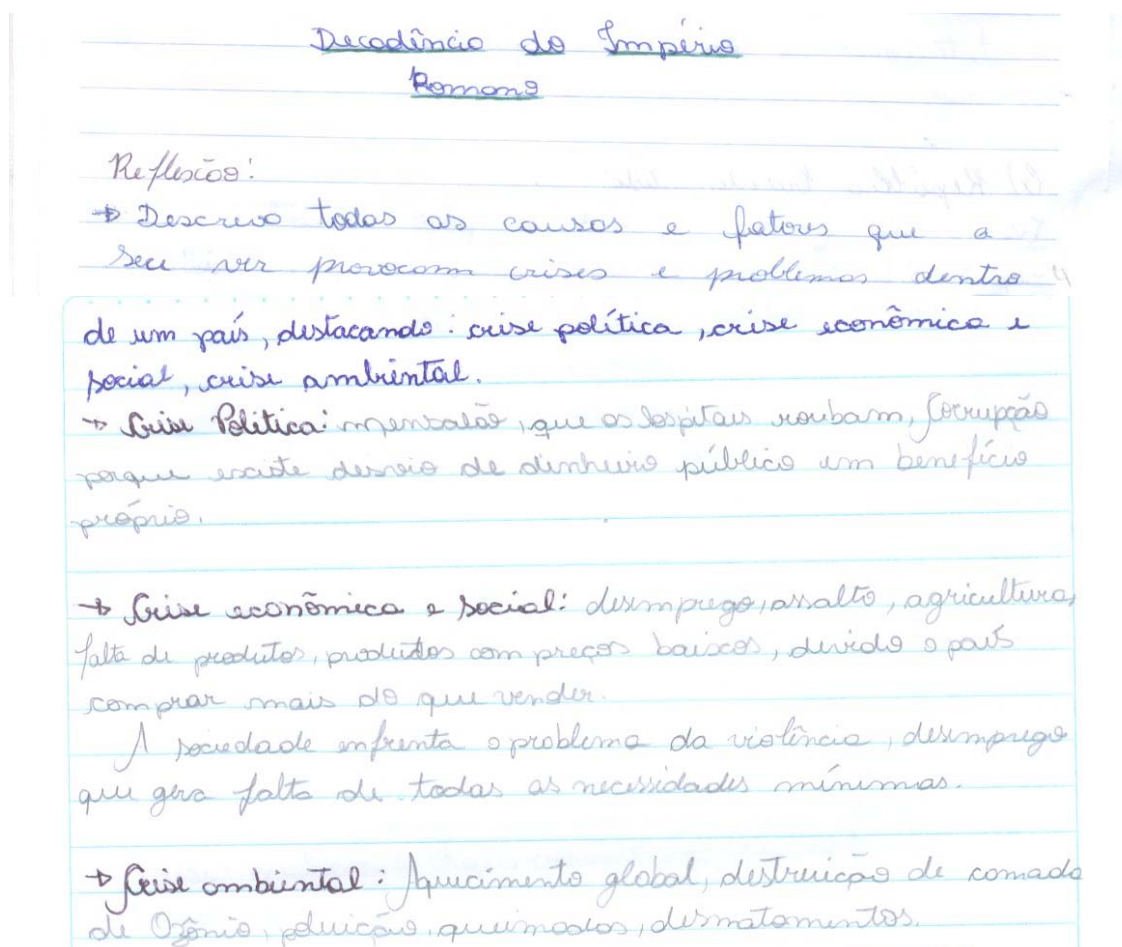 Decadência do Império
Romano
Reflexão:
→ Descreva todas as causas e fatores que a
seu ver provocam crises e problemas dentro
de um país, destacando: crise política, crise econômica e
social, crise ambiental.
→ Crise Política: mensalão, que os hospitais roubam, Corrupção
porque existe desvio de dinheiro público em benefício
próprio.
→ Crise econômica e social: desemprego, assalto, agricultura,
falta de produtos, produtos com preços baixos, devido o país
comprar mais do que vender.
A sociedade enfrenta o problema da violência, desemprego
que gera falta de todas as necessidades mínimas.
→ Crise ambiental: Aquecimento global, destruição de camada
de Ozônio, poluição, queimadas, desmatamentos.